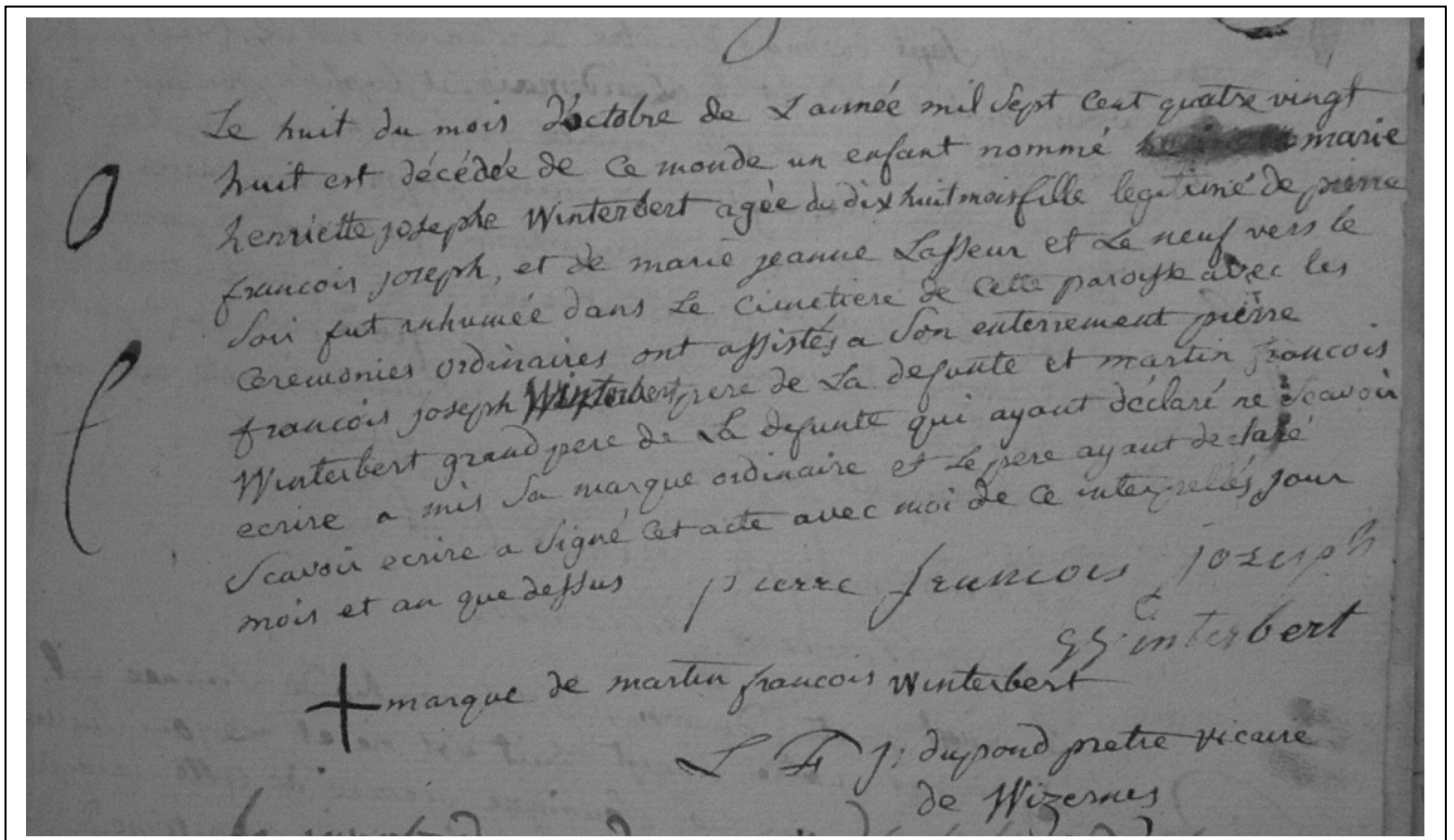 Le huit du mois d'octobre de L'année mil Sept Cent quatre vingt
huit est décédée de Ce monde un enfant nommé marie
henriette josephe Winterbert agée du dix huit mois fille legitime de pierre
francois joseph, et de marie jeanne Lasseur et Le neuf vers le
Soir fut inhumée dans Le Cimetiere de Cette paroisse avec les
Ceremonies ordinaires ont assistés a Son enterrement pierre
francois joseph Winterbert pere de La defunte et martin francois
Winterbert grand pere de La defunte qui ayant déclaré ne Scavoir
ecrire a mis Sa marque ordinaire et Le pere ayant declaré
Scavoir ecrire a Signé Cet acte avec moi de Ce interpellés Jour
mois et an que dessus pierre francois Joseph
Winterbert
marque de martin francois Winterbert
L F j: dupond pretre vicaire
de Wizernes